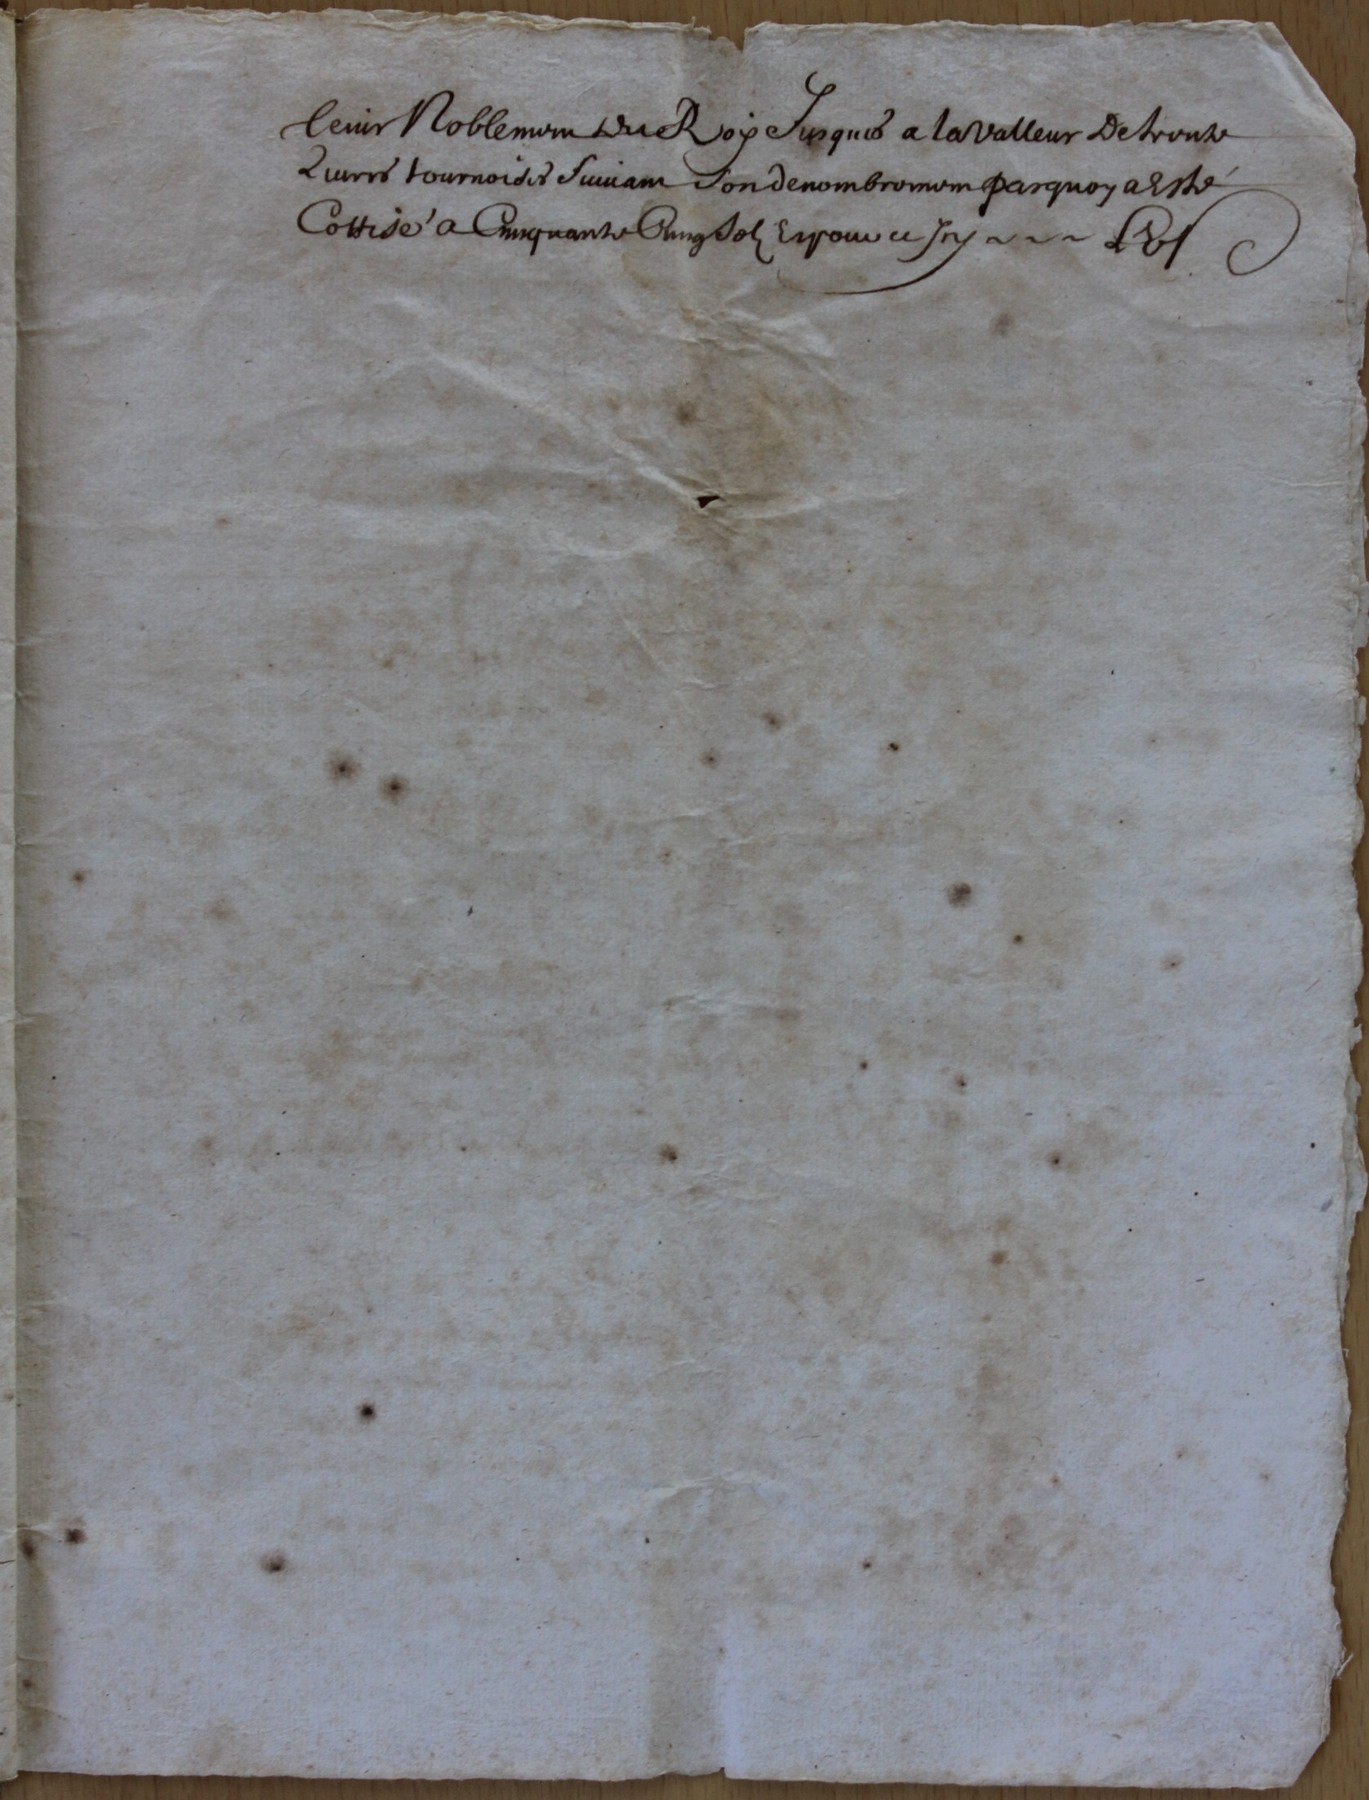 tenir Noblement du Roy Jusques a la valleur De trente
Livres tournoises Suivant Son denombrement parquoy a Esté
Cottisé a Cinquante Cinq Solz Et pour ce Icy ~ ~ ~ LVs